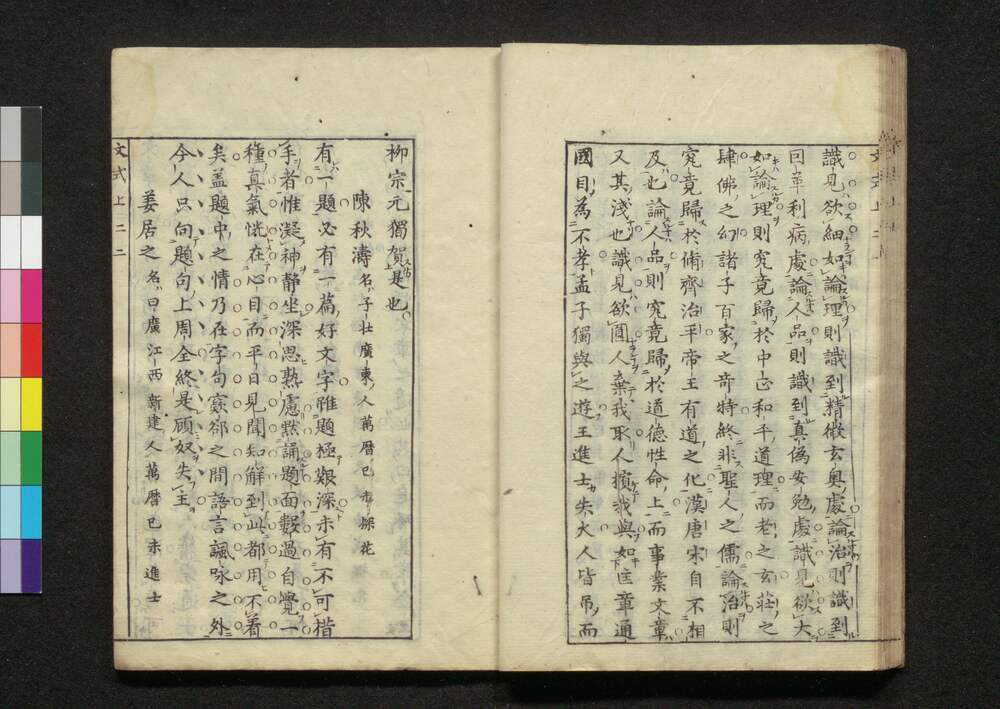 識見欲細如論理則識到精微玄奧處論治則識到
回革利病處論人品則識到真偽安勉處識見欲大
如論理則究竟歸於中正和平道理而老之玄莊之
肆佛之幻諸子百家之奇特終非聖人之儒論治則
究竟歸於脩齊治平帝王有道之化漢唐宋自不相
及也論人品則究竟歸於道德性命上而事業文章
又其淺也識見欲圓人棄我取人擯我與如匡章通
國目為不孝孟子獨與之遊王進士失火人皆吊而
柳宗元獨賀是也
陳秋濤名子壯廣東人萬曆己未探花
有一題必有一篇好文字雖題極艱深未有不可措
手者惟凝神靜坐深思熟慮默誦題面數過自覺一
種真氣恍在心目而平日見聞知解到此都用不着
矣盖題中之情乃在字句窾郤之間語言諷咏之外
今人只向題句上周全終是顧奴失主
姜居之名曰廣江西新建人萬曆己未進士
文式上 二二